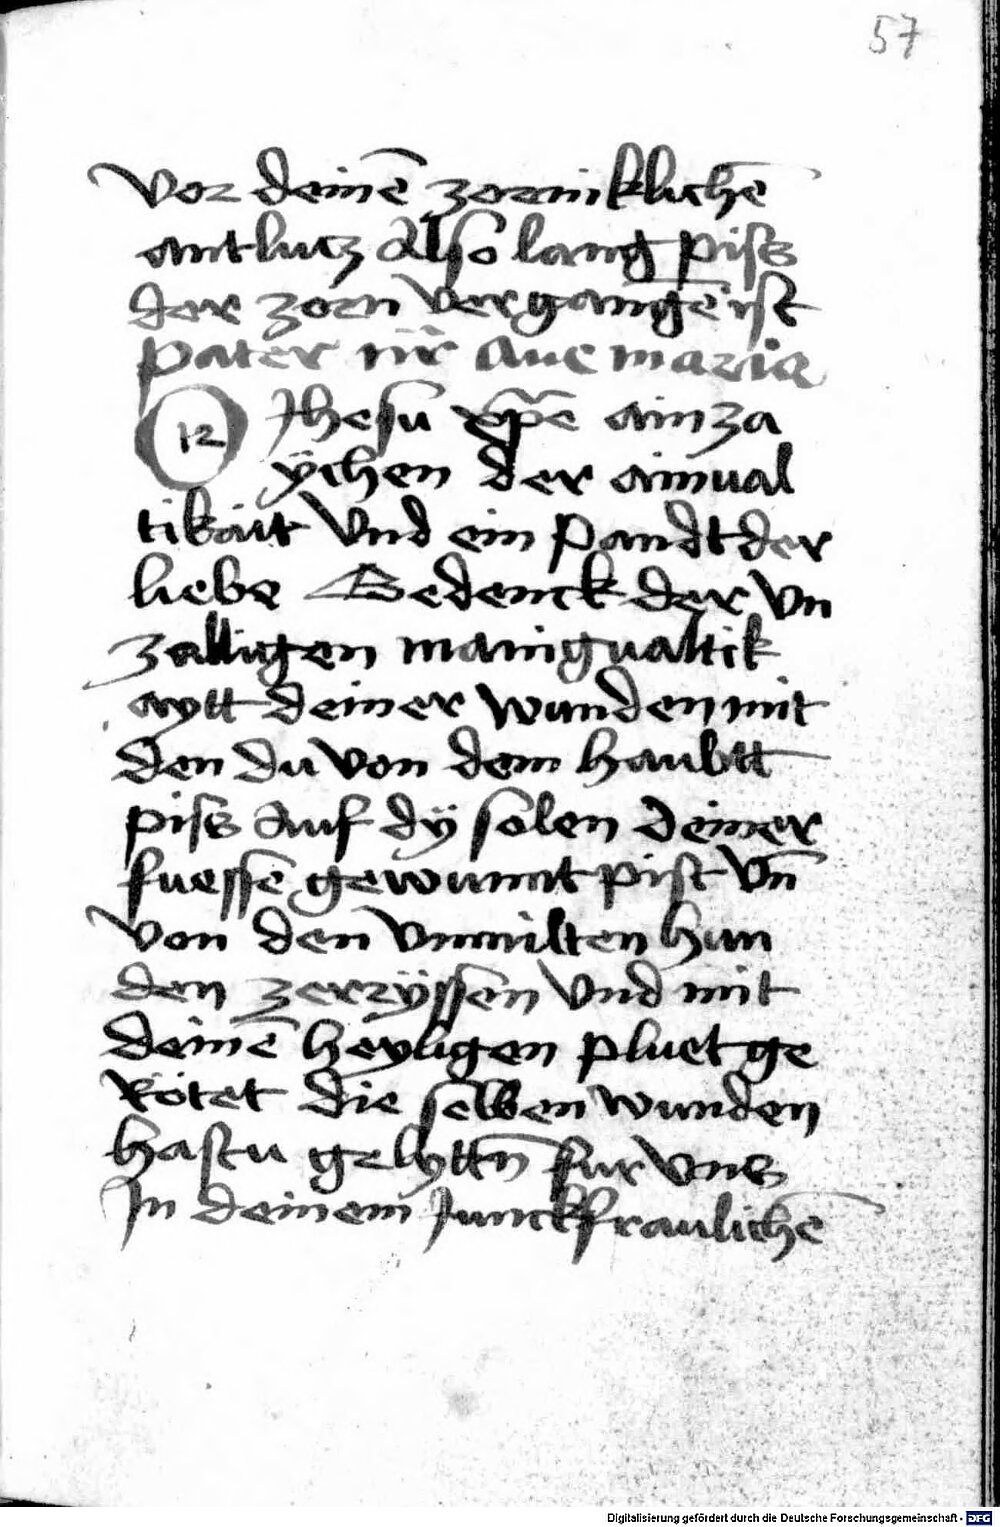 57
Vor deinē zorniklichē
antlucz Also lang piss
der zorn vergangē ist
pater nr̄ Aue maria
12 Jhesu xp̄e ain za
ÿchen der ainual
tikait Vnd ein Pandt der
liebe Gedenck der vn
zalligen manigualtik
aytt deiner wunden mit
den du von dem haubtt
piss Auf dÿ solen deiner
fuessē gewunnt pist Vn̄
von den vnmilten hun
den zerryssen Vnd mit
deinē heyligen pluet ge
Rötet die selben wunden
hastu gelyttn̄ fur vns
In deinem Junckfraulichē
Digitalisierung gefördert durch die Deutsche Forschungsgemeinschaft - DFG